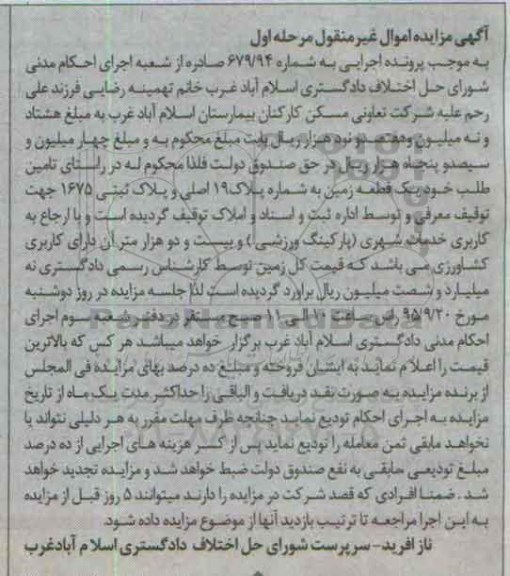 آگهی مزایده اموال غیر منقول مرحله اول
به موجب پرونده اجرایی به شماره ۶۷۹/۹۴ صادره از شعبه اجرای احکام مدنی
شورای حل اختلاف دادگستری اسلام آباد غرب خانم تهمینه رضایی فرزند علی
رحم علیه شرکت تعاونی مسکن کارکنان بیمارستان اسلام آباد غرب به مبلغ هشتاد
و نه میلیون و هفت و نود هزار ریال بابت مبلغ محکوم به و مبلغ چهار میلیون و
سیصدو پنجاه هزار ریال در حق صندوق دولت فلذا محکوم له در راستای تامین
طلب خود یک قطعه زمین به شماره پلاک۱۹ اصلی و پلاک ثبتی ۱۶۷۵ جهت
توقیف معرفی و توسط اداره ثبت و اسناد و املاک توقیف گردیده است و با ارجاع به
کاربری خدمات شهری (پارکینگ ورزشی) و بیست و دو هزار متر آن دارای کاربری
کشاورزی می باشد که قیمت کل زمین توسط کارشناس رسمی دادگستری نه
میلیارد و شصت میلیون ریال براورد گردیده است لذا جلسه مزایده در روز دوشنبه
مورخ ۹۵/۹/۲۰ راس ساعت ۱۰ الی ۱۱ صبح مستقر در دفتر شعبه سوم اجرای
احکام مدنی دادگستری اسلام آباد غرب برگزار خواهد میباشد هر کس که بالاترین
قیمت را اعلام نماید به ایشان فروخته و مبلغ ده درصد بهای مزایده فی المجلس
از برنده مزایده به صورت نقد دریافت و الباقی را حداکثر مدت یک ماه از تاریخ
مزایده به اجرای احکام تودیع نماید چنانچه ظرف مهلت مقرر به هر دلیلی نتواند یا
نخواهد مابقی ثمن معامله را تودیع نماید پس از کسر هزینه های اجرایی از ده درصد
مبلغ تودیعی مابقی به نفع صندوق دولت ضبط خواهد شد و مزایده تجدید خواهد
شد . ضمنا افرادی که قصد شرکت در مزایده را دارند میتوانند ۵ روز قبل از مزایده
به این اجرا مراجعه تا ترتیب بازدید آنها از موضوع مزایده داده شود.
ناز افرید- سرپرست شورای حل اختلاف دادگستری اسلام آبادغرب